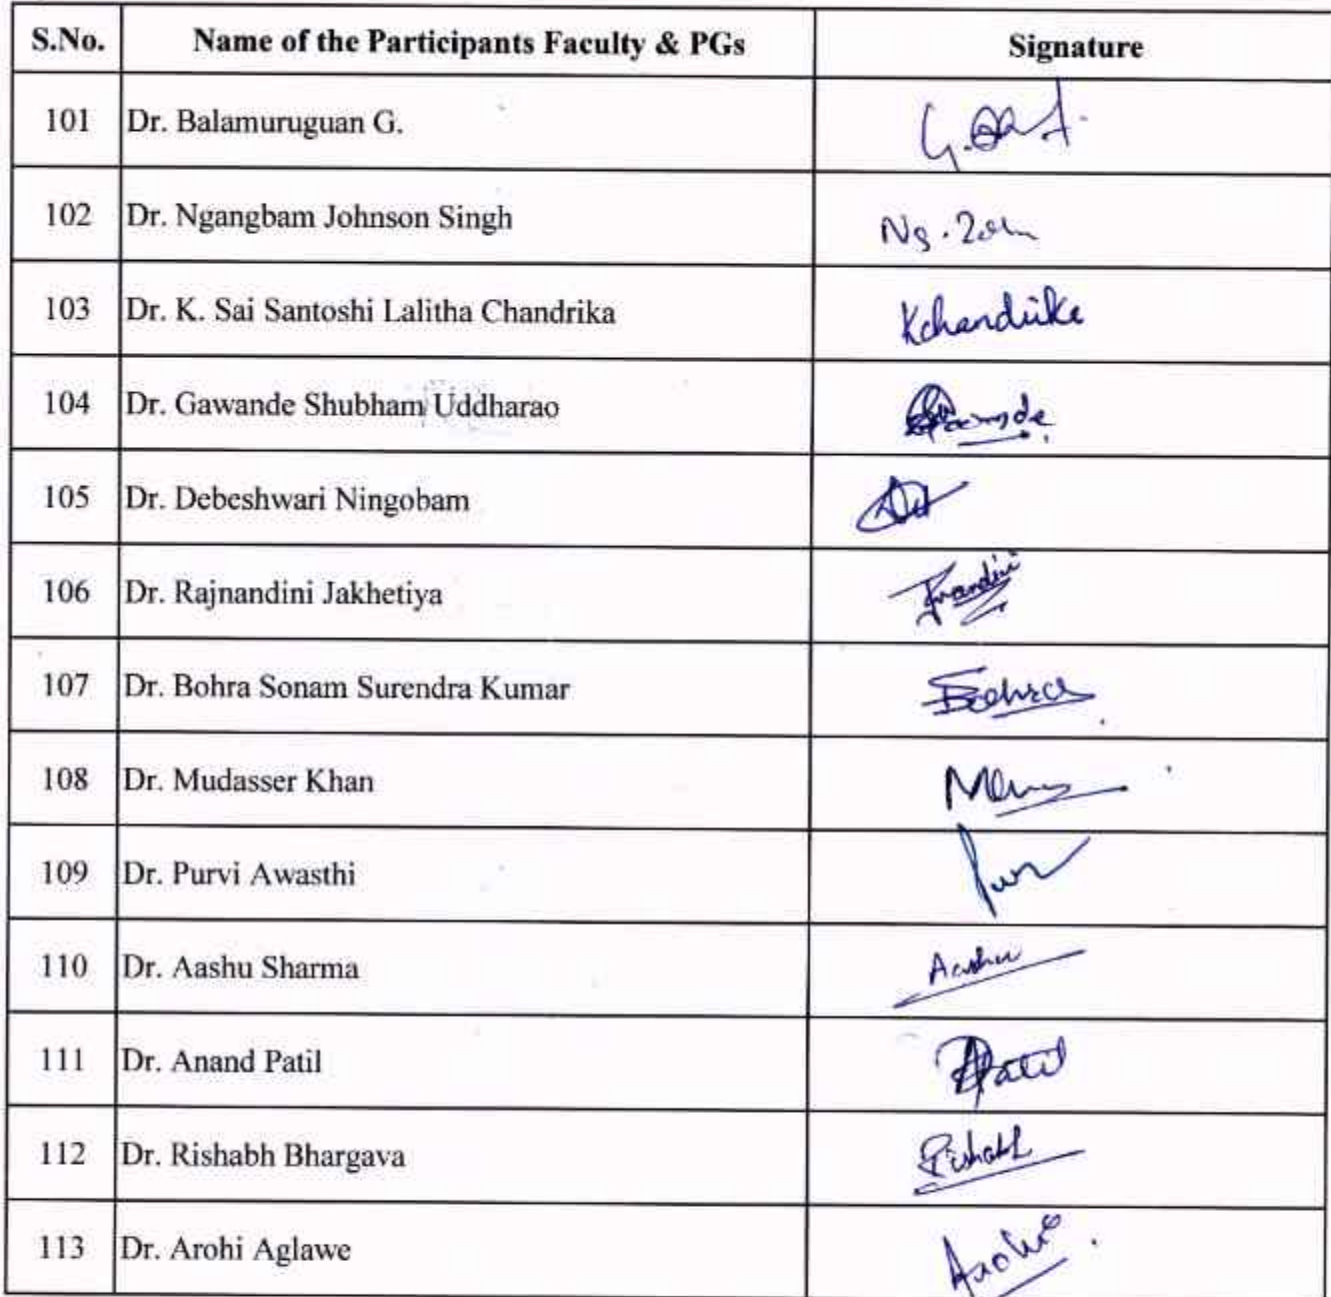 S.No. Name of the Participants Faculty & PGs Signature
101 Dr. Balamuruguan G.
102 Dr. Ngangbam Johnson Singh Ng.
103 Dr. K. Sai Santoshi Lalitha Chandrika Kchandrika
104 Dr. Gawande Shubham Uddharao
105 Dr. Debeshwari Ningobam
106 Dr. Rajnandini Jakhetiya
107 Dr. Bohra Sonam Surendra Kumar Bohra
108 Dr. Mudasser Khan
109 Dr. Purvi Awasthi
110 Dr. Aashu Sharma Aashu
111 Dr. Anand Patil Patil
112 Dr. Rishabh Bhargava Rishabh
113 Dr. Arohi Aglawe Arohi